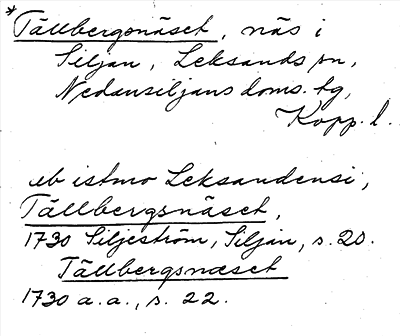 *Tällbergsnäset, näs i
Siljan, Leksands sn,
Nedansiljans doms. tg,
Kopp. l.
ub istmo Leksandensi,
Tällbergsnäset,
1730 Siljeström, Siljan, s. 20.
Tällbergsnæset
1730 a.a., s. 22.